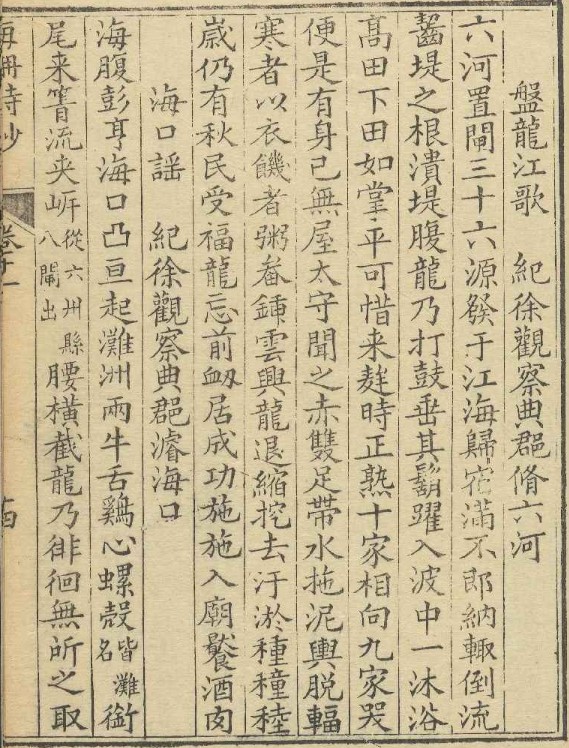 盤龍江歌　紀徐觀察典郡脩六河
六河置閘三十六源發于江海歸宿滿不即納輙倒流
齧堤之根潰堤腹龍乃打鼓垂其鬍躍入波中一沐浴
高田下田如掌平可惜来麰時正熟十家相向九家哭
便是有身已無屋太守聞之赤雙足帶水拖泥輿脱輻
寒者以衣饑者粥畚鍤雲興龍退縮挖去汙淤種穜稑
嵗仍有秋民受福龍忘前衂居成功施施入廟饕酒肉
海口謡　紀徐觀察典郡濬海口
海腹彭亨海口凸亘起灘洲兩牛舌鷄心螺殼皆灘名銜
尾来箐流夹㟁從六州縣八閘出腰橫截龍乃徘徊無所之取